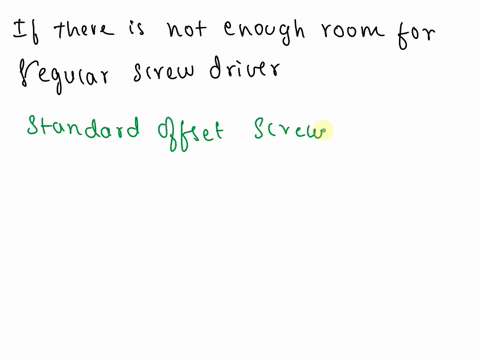 If there is not enough room for
regular screw driver
standard offset screw